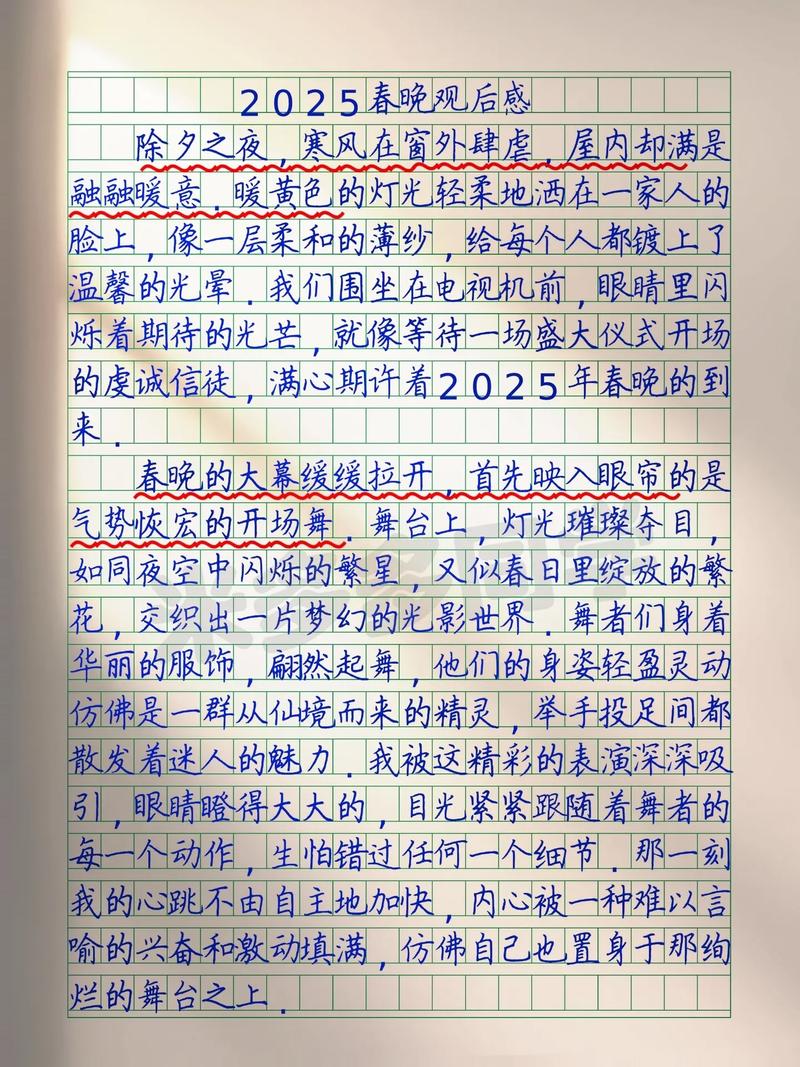 2025春晚观后感
除夕之夜,寒风在窗外肆虐.屋内却满是
融融暖意.暖黄色的灯光轻柔地洒在一家人的
脸上,像一层柔和的薄纱,给每个人都镀上了
温馨的光晕.我们围坐在电视机前,眼睛里闪
烁着期待的光芒,就像等待一场盛大仪式开场
的虔诚信徒,满心期许着2025年春晚的到
来.
春晚的大幕缓缓拉开,首先映入眼帘的是
气势恢宏的开场舞.舞台上,灯光璀璨夺目,
如同夜空中闪烁的繁星,又似春日里绽放的繁
花,交织出一片梦幻的光影世界.舞者们身着
华丽的服饰,翩然起舞,他们的身姿轻盈灵动
仿佛是一群从仙境而来的精灵,举手投足间都
散发着迷人的魅力.我被这精彩的表演深深吸
引,眼睛瞪得大大的,目光紧紧跟随着舞者的
每一个动作,生怕错过任何一个细节.那一刻
我的心跳不由自主地加快,内心被一种难以言
喻的兴奋和激动填满,仿佛自己也置身于那绚
烂的舞台之上.